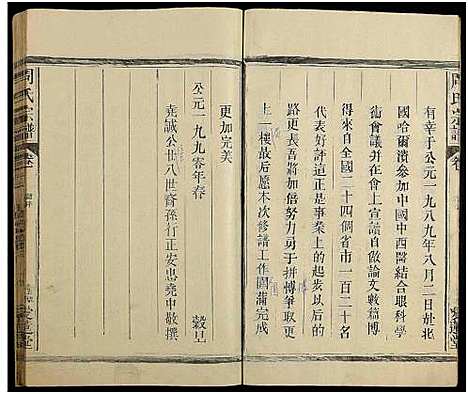 周氏宗譜
卷
有幸于公元一九八九年八月二日赴北
國哈爾濱參加中國中西醫結合眼科學
術會議并在會上宣讀自做論文數稿博
得來自全國二十四個省市一百二十名
代表好評這正是事業上的起步以后的
路更長吾將加倍努力勇于拼博爭取更
上一樓故后愿本次修譜工作圓滿完成
更加完美
公元一九九零年春 穀旦
堯誠公廿八世裔孫行正安忠堯中敬撰
周氏宗譜
卷